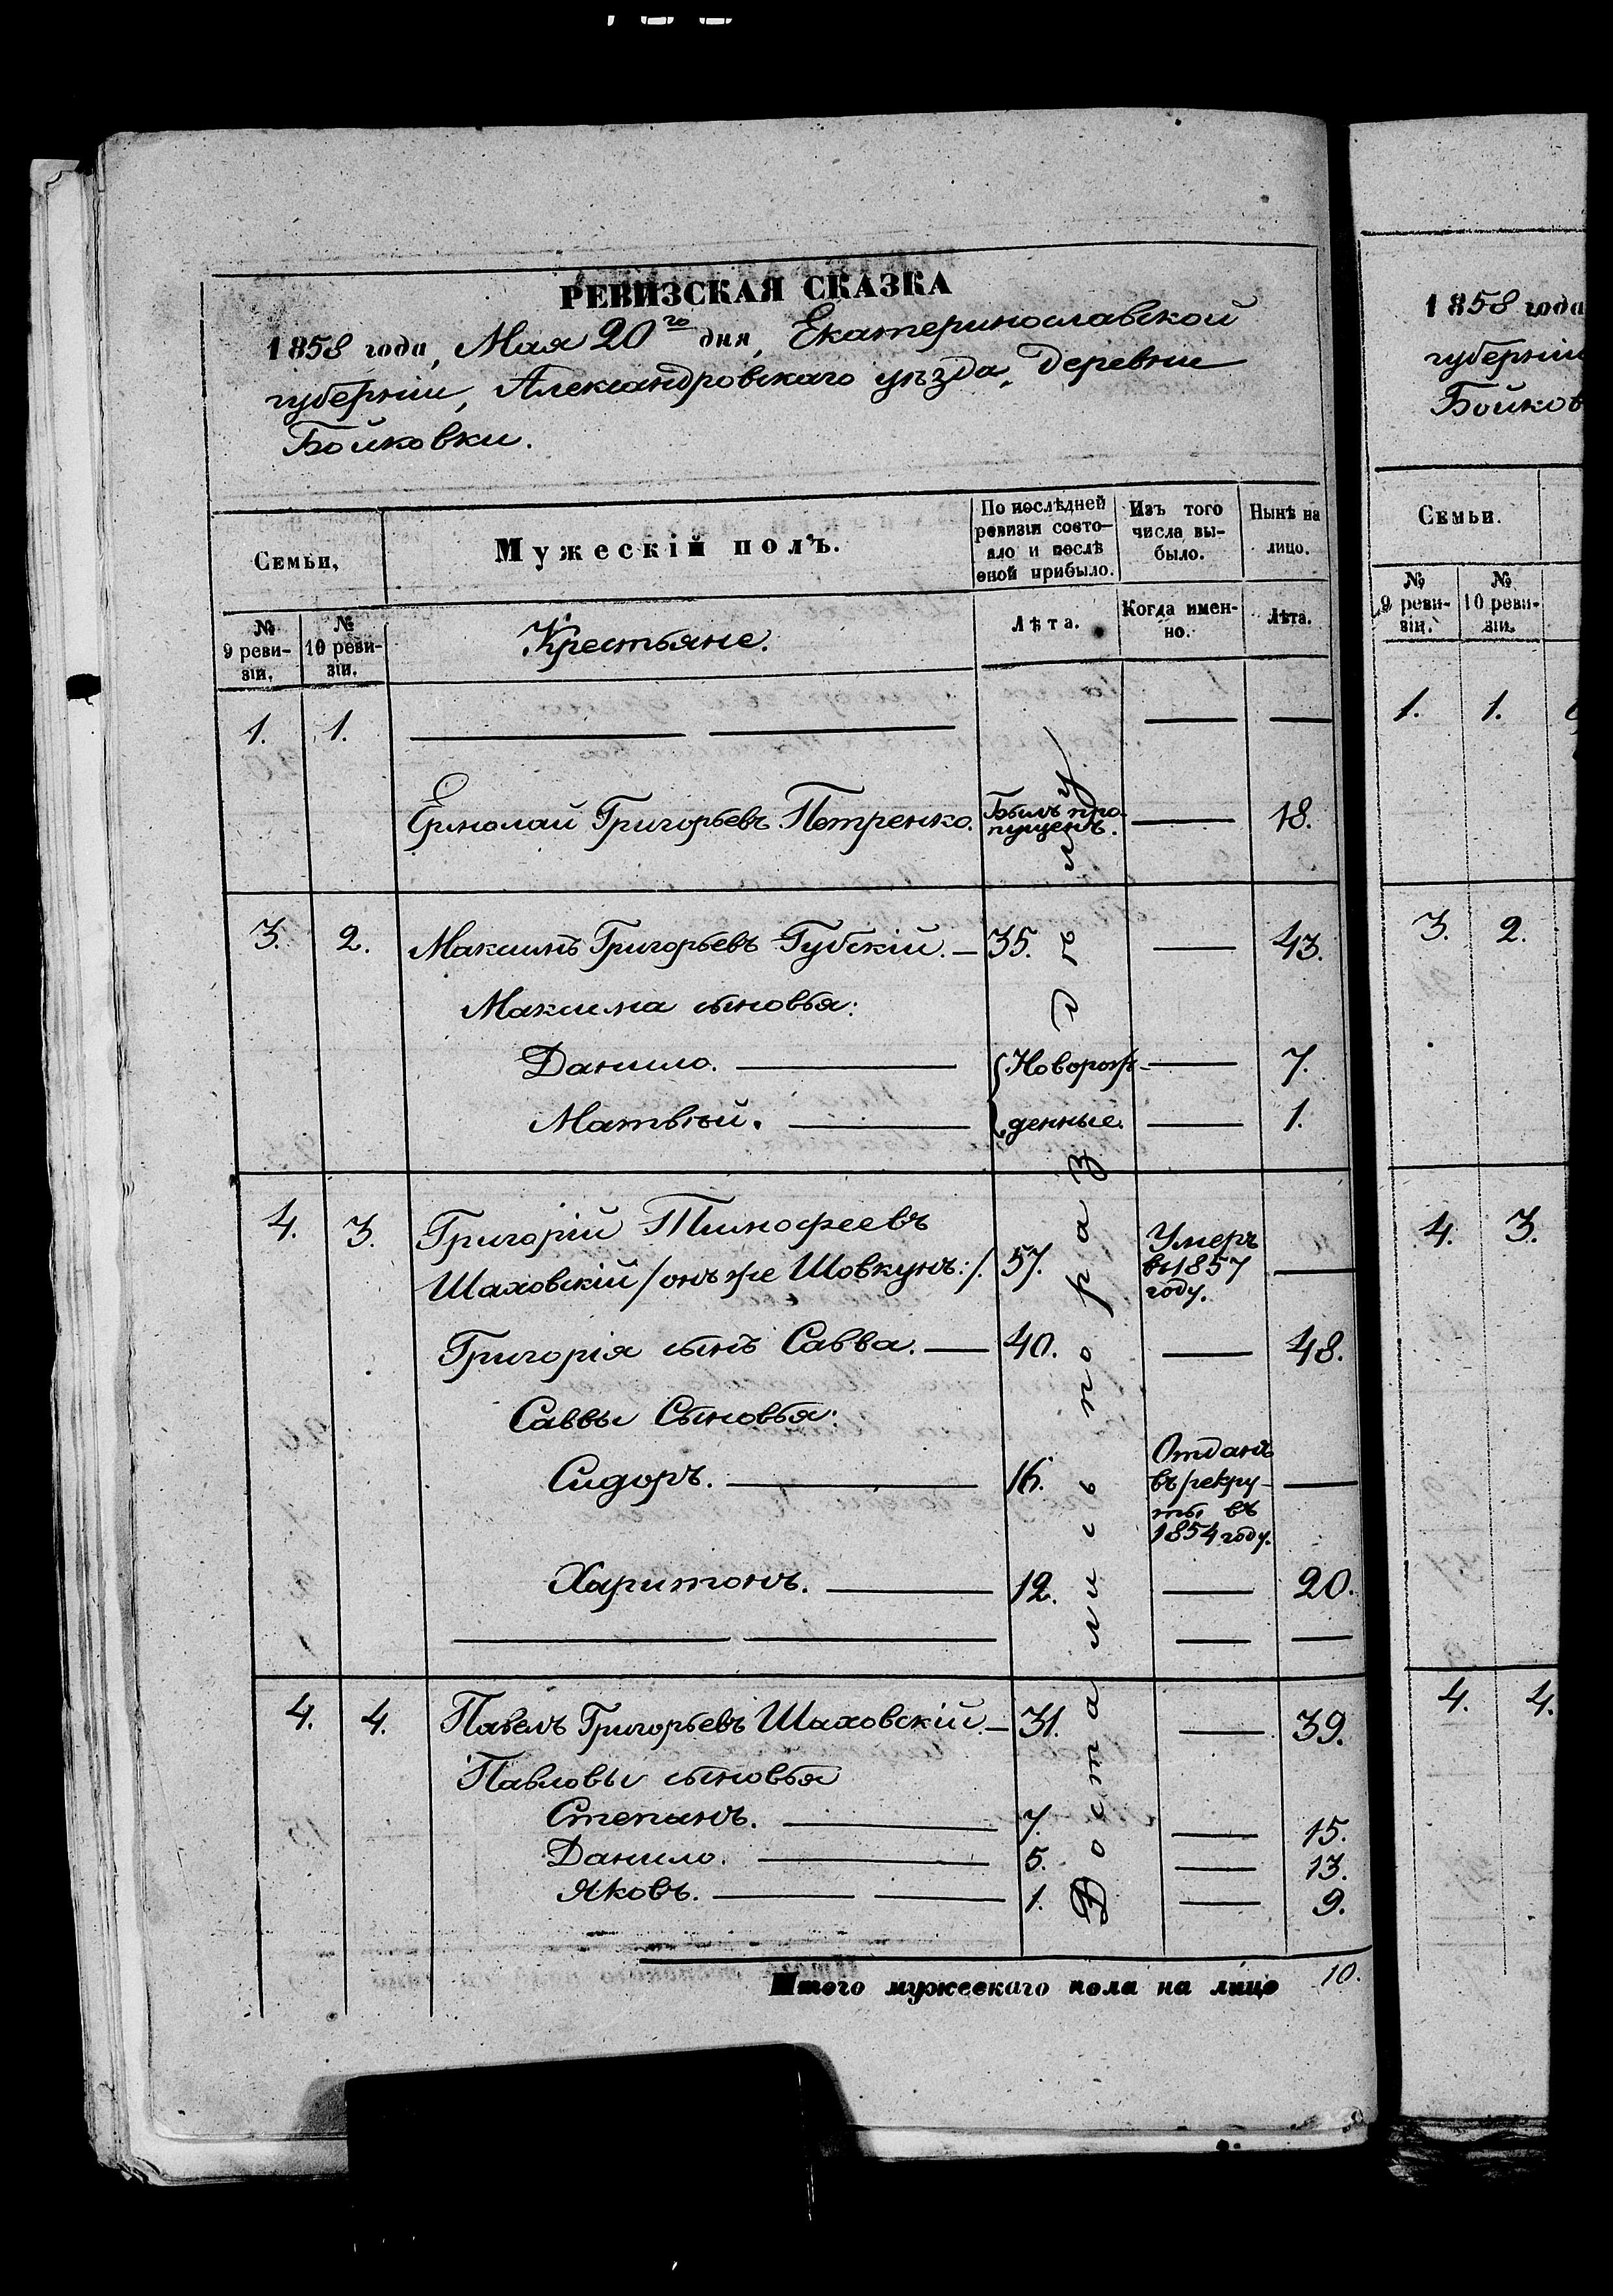 РЕВИЗСКАЯ СКАЗКА
1858 года, Мая 20го дня, Екатеринославской
губерніи, Александровскаго уѣзда, деревни
Бойковки.
Семьи,
Мужескій полъ.
По послѣдней ревизіи состояло и послѣ оной прибыло.
Изъ того числа выбыло.
Нынѣ на лицо.
№ 9 ревизіи.
№ 10 ревизіи.
Крестьяне.
Лѣта.
Когда именно.
Лѣта.
1. 1.
Ермолай Григорьевъ Петренко. Былъ пропущенъ. 18.
3. 2. Максимъ Григорьевъ Губскій. 35. 43.
Максима сыновья:
Данило. Новорож- 7.
Матвѣй. денные. 1.
4. 3. Григорій Тимофеевъ
Шаховскій /онъ же Шовкунъ:/. 57. Умеръ въ 1857 году.
Григорія сынъ Савва. 40. 48.
Саввы Сыновья:
Сидоръ. 16. Отданъ въ рекруты въ 1854 году.
Харитонъ. 12. 20.
4. 4. Павелъ Григорьевъ Шаховскій. 31. 39.
Павловы сыновья
Степанъ. 7. 15.
Данило. 5. 13.
Яковъ. 1. 9.
Итого мужескаго пола на лицо 10.
1858 года
губерніи
Бойков
Семьи.
№ 9 ревизіи.
№ 10 ревизіи.
1. 1.
3. 2.
4. 3.
4. 4.